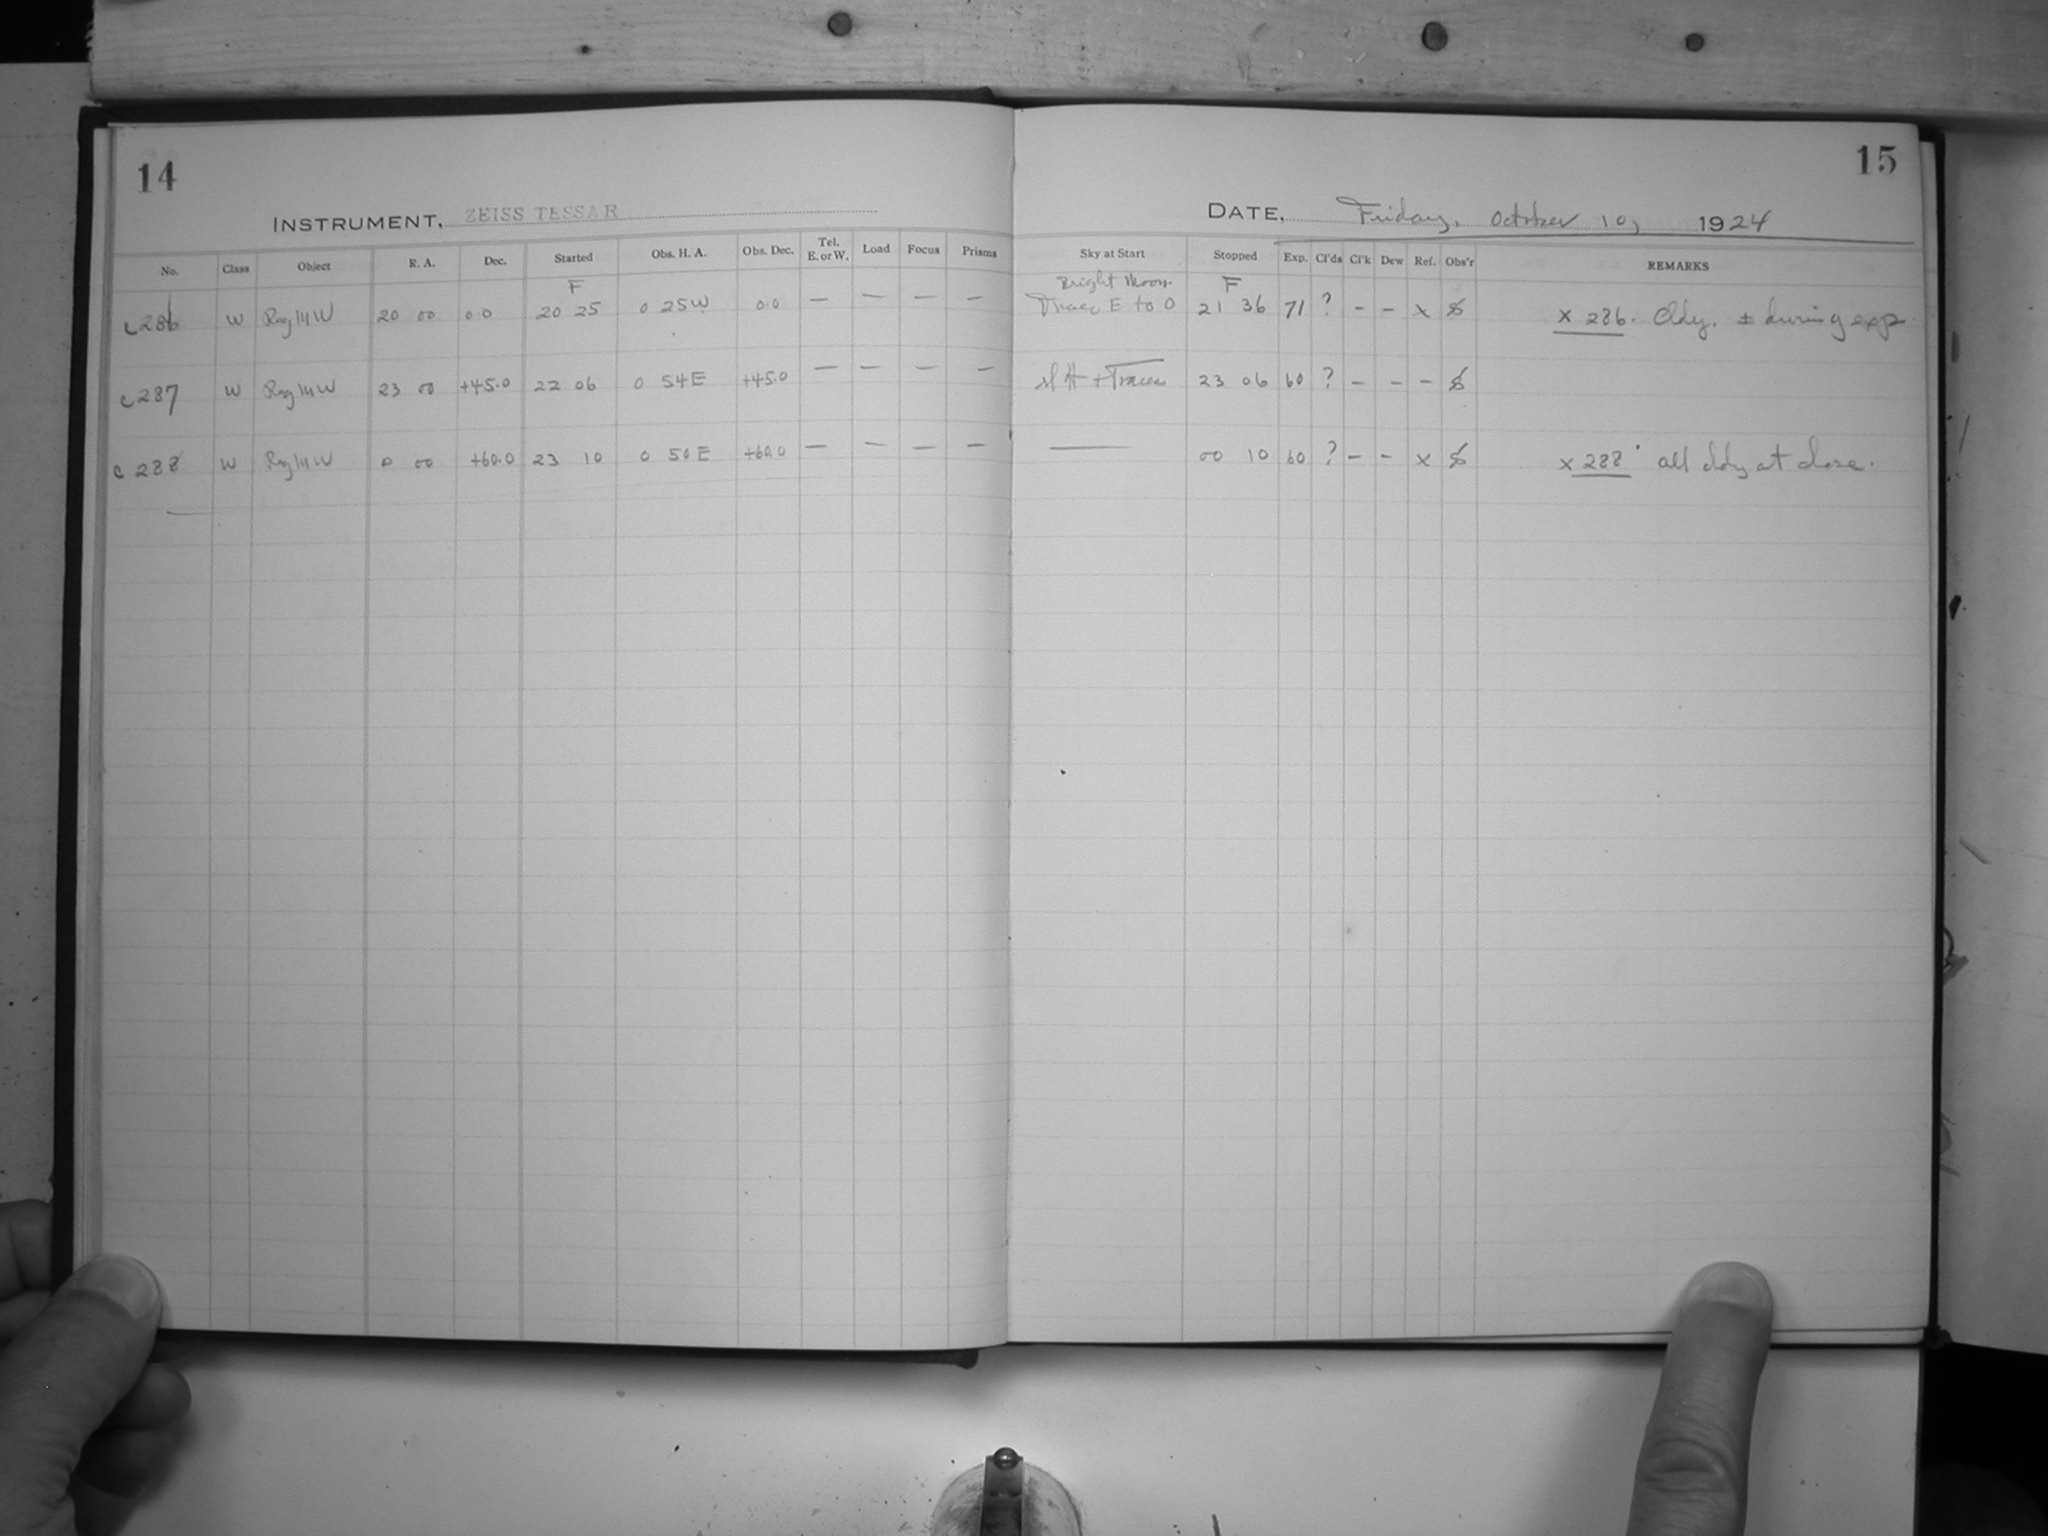 14
15
INSTRUMENT, ZEISS TESSAR
DATE, Friday, October 10, 1924
No. Class Object R. A. Dec. Started Obs. H. A. Obs. Dec. Tel. E. or W. Load Focus Prisms Sky at Start Stopped Exp. Cl'ds Cl'k Dew Ref. Obs'r REMARKS
F Bright Moon. F
c 286 W Reg W 20 00 0.0 20 25 0 25 W 0.0 — — — — Traces E to O 21 36 71 ? - - x x 286. Cldy. ± during exp
c 287 W Reg W 23 00 +45.0 22 06 0 54 E +45.0 — — — — sl H + Traces 23 06 60 ? - - -
c 288 W Reg W 0 00 +60.0 23 10 0 50 E +60.0 — — — — — 00 10 60 ? - - x x 288 all cldy at close.